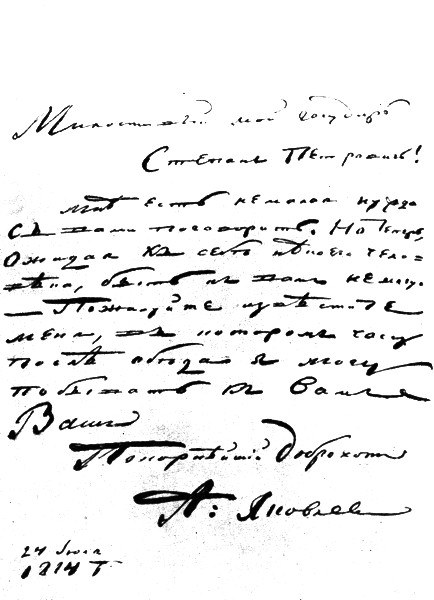 Милостивый мой Государь
Степанъ Петровичь!
Мнѣ есть немалая нужда
съ вами поговорить. Но теперь,
Ожидая къ себѣ нѣкоего чело-
вѣка, быть къ вамъ не могу
Пожалуйте извѣстите
меня, въ которомъ часу
послѣ обѣда я могу
побывать къ Вамъ
Вашъ
Покорнѣйшій Доброхотъ
А: Яковлев
24 Июля
1814 Г